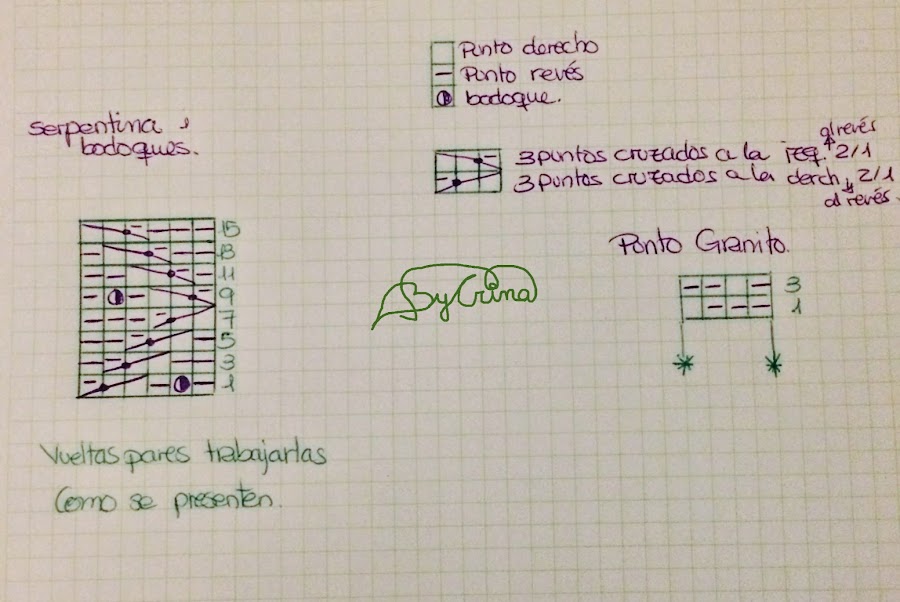 Punto derecho
Punto revés
bodoque.
Serpentina,
bodoques.
al revés
3 puntos cruzados a la izq. 2/1
3 puntos cruzados a la derch 2/1
al revés.
Punto Granito.
3
1
15
13
11
9
7
5
3
1
By Crina
Vueltas pares trabajarlas
Como se presenten.